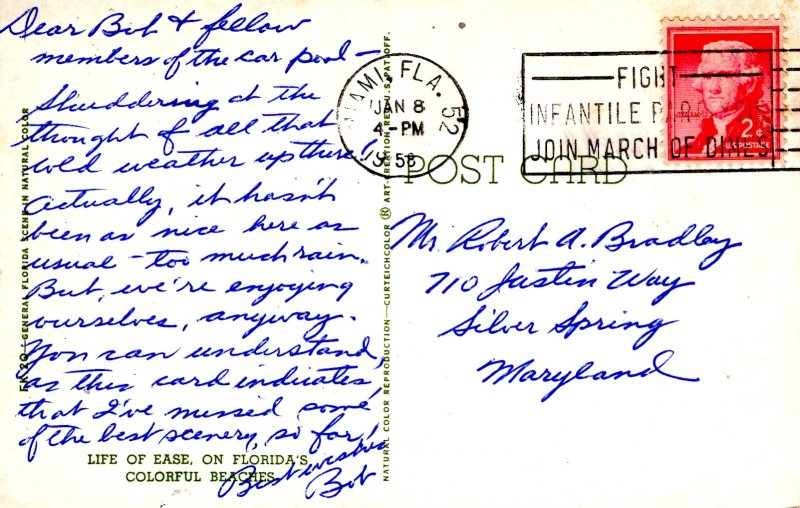 Dear Bob & fellow
members of the car pool —
Shuddering at the
thought of all that
cold weather up there!
Actually, it hasn't
been as nice here as
usual - too much rain.
But, we're enjoying
ourselves, anyway.
You can understand,
as this card indicates,
that I've missed some
of the best scenery, so far!
Best wishes
Bob
LIFE OF EASE, ON FLORIDA'S
COLORFUL BEACHES
FK 20—GENERAL FLORIDA SCENE IN NATURAL COLOR
NATURAL COLOR REPRODUCTION—CURTEICHCOLOR ® ART-CREATION REG. U.S. PAT. OFF.
MIAMI, FLA. 52
JAN 8
4-PM
1958
FIGHT
INFANTILE PARALYSIS
JOIN MARCH OF DIMES
2¢
U.S. POSTAGE
POST CARD
Mr. Robert A. Bradley
710 Justin Way
Silver Spring
Maryland